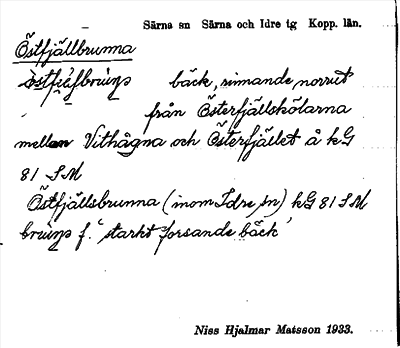 Särna sn Särna och Idre tg Kopp. län.
Östfjällbrunna
bäck, rinnande norrut
från Österfjällskölarna
mellan Vithågna och Österfjället å kG
81 SM
Östfjällsbrunna (inom Idre sn) kG 81 SM
f. 'starkt forsande bäck'
Niss Hjalmar Matsson 1933.